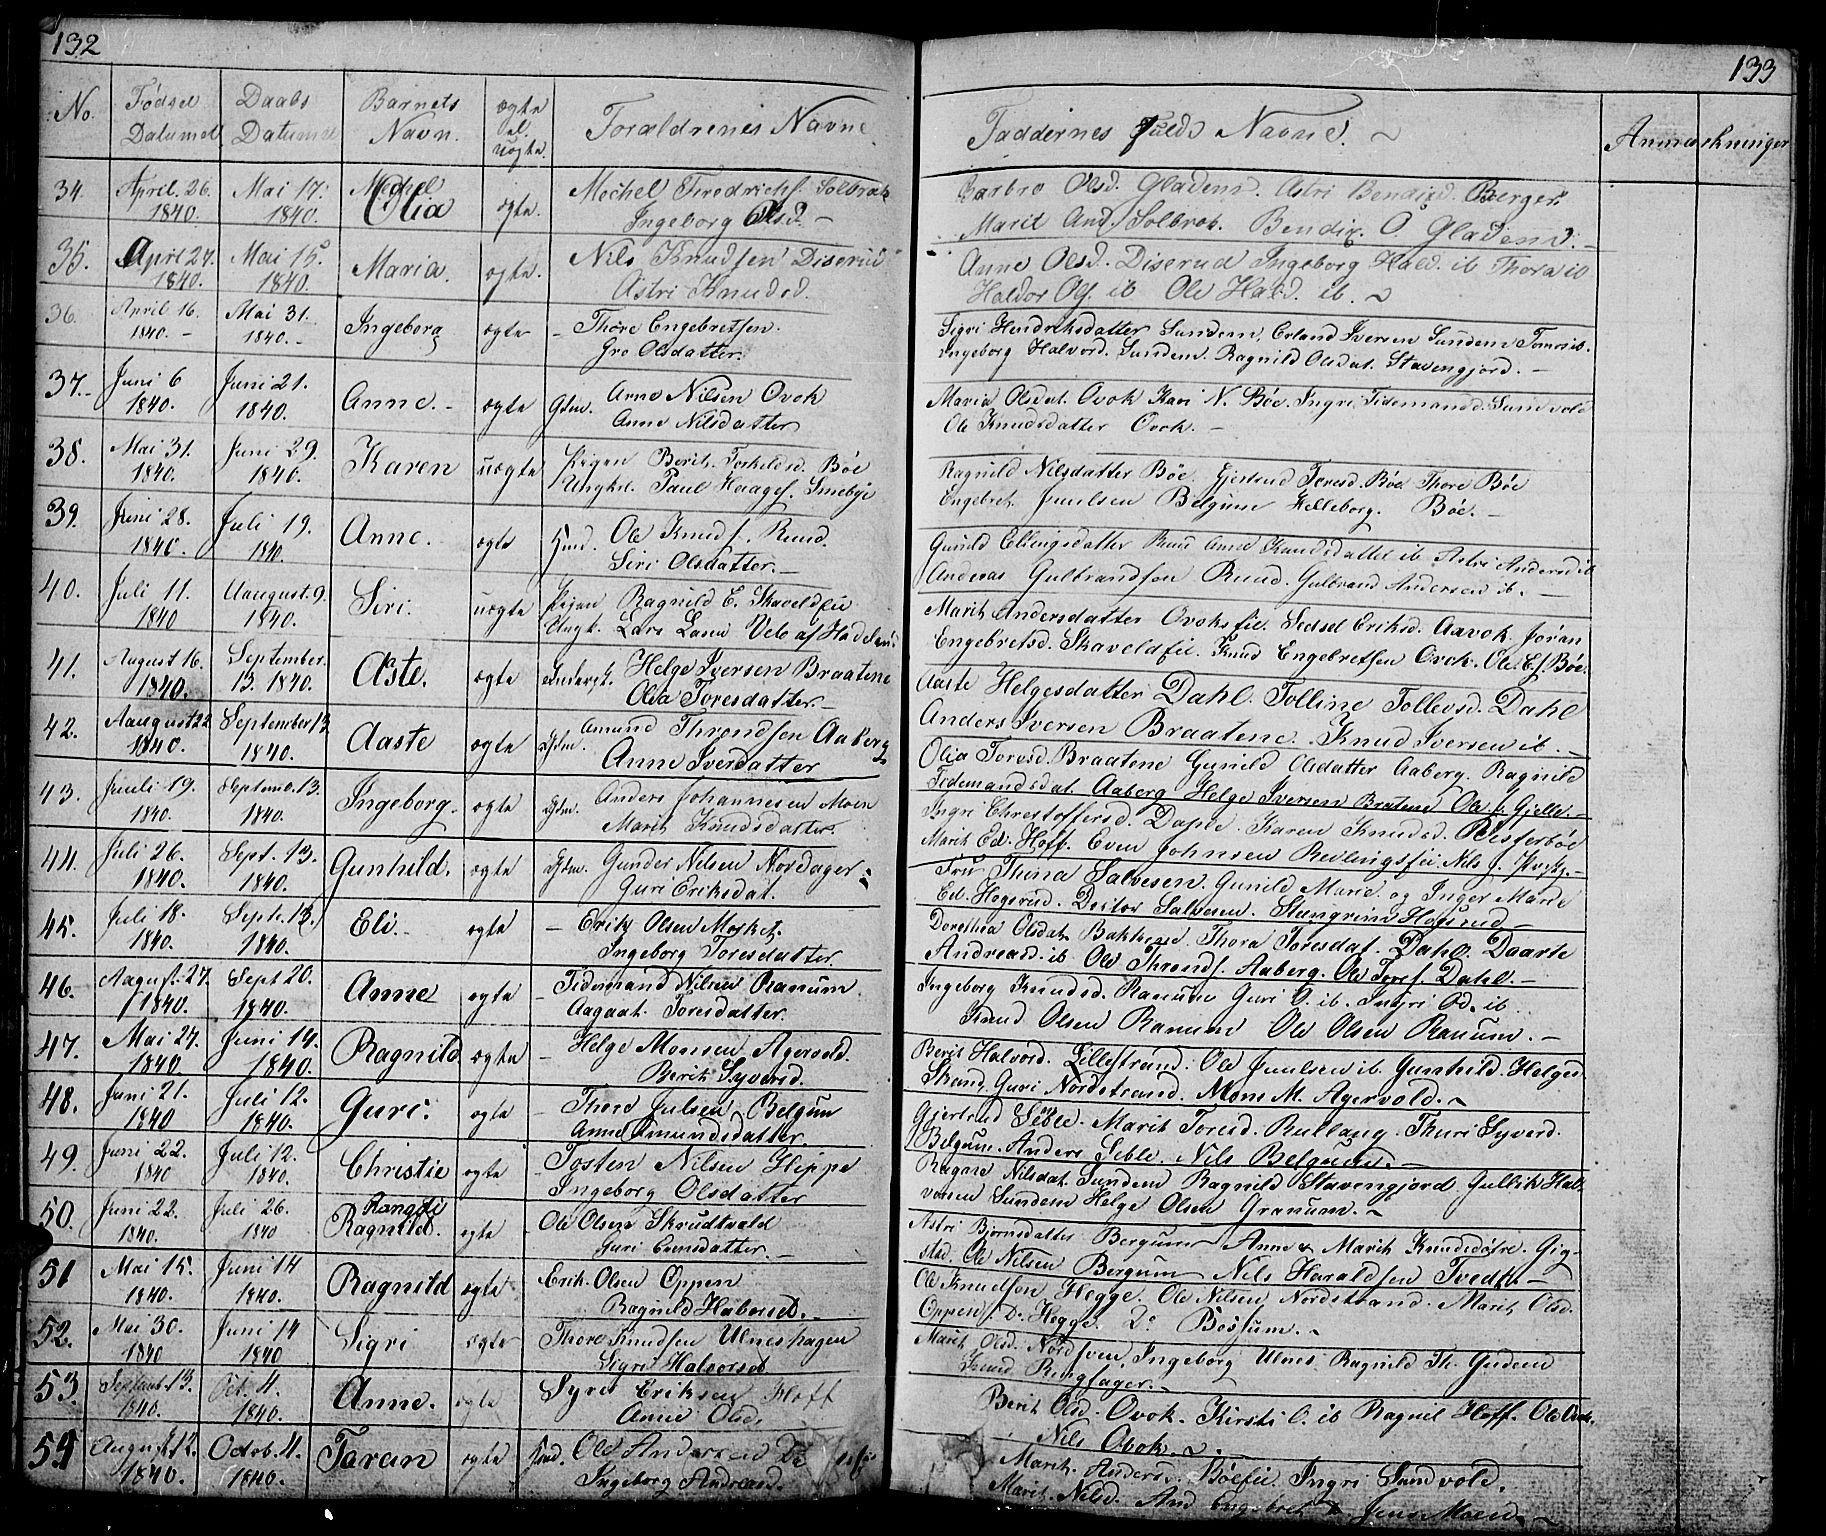 132
133
No. Fødsel Datumet Daabs Datumet Barnets Navn. ægte el. uægte. Foræeldrenes Navne
Faddernes fulde Navne. ~ Anmærkninger
34. April. 26. 1840. Mai 17. 1840. Olia ægte. Mechel Ingeborg Olsd. –
Barbro Olsd. Gladens. Astri Bendixd. Berger.
Marit And. Solbrok. Bendix. O. Gladend. –
35. April 27. 1840. Mai 15. 1840. Maria. ægte. Nils Knudsen Diserud Astri Knudsd.
Anne Olsd. Diserud Ingeborg Hald. ib Thora ib
Haldor Ols. ib Ole Hald. ib. ~
36. April 16. 1840. – Mai 31. 1840. – Ingeborg ægte – Thore Engebretsen. Gro Olsdatter.
Sigri Hendriksdatter Sundem, Erland Iversen Sundem
Ingeborg Halvord. Sundem. Ragnild Olsdat. Stavengjord. –
37. – Juni 6 1840. Juni 21. 1840. Anne. – ægte Gdm. Arne Nilsen Ovok Anne Nilsdatter
Maria Olsdat. Ovok Kari N. Bøe. Ingri Tidemandsd. Sundvold
Ole Knudsdatter Ovok. –
38. Mai 31. 1840. Juni 29. 1840. Karen uægte Pigen Berit Torkelsd. Bøe Ungkrl. Paul Haages. Smebye
Ragnild Nilsdatter Bøe. Gjertrud Toresd. Bøe Thore Bøe
Engebret Juulsen Belgum Helleborg. Bøe. –
39. Juni 28. 1840. Juli 19. 1840. Anne. ægte Hmd. Ole Knuds. Ruud. Siri Olsdatter. –
Gunild Ellingsdatter Ruud Anne Knudsdatter ib. Astri Andersd ib
Andreas Gulbrandsen Ruud. Gulbrand Andersen ib. –
40. Juli 11. 1840 Aaugust. 9. 1840. Siri. uægte Pigen Ragnild E. Skaveldfie Ungk. Lars Velo af Hadeland
Marit Andersdatter Ovoksfie. Sidsel Eriksd. Aavok. Jøran
Engebretsd. Skaveldfie. Knud Engebretsen Ovok. Ole E. Bøe.
41. August 16. 1840. September. 13. 1840. Aaste. ægte Helge Iversen Braatene Olia Toresdatter. –
Aaste Helgesdatter Dahl. Tolline Tollevsd. Dahl
Anders Iversen Braatene. Knud Iversen ib. –
42. Aaugust 22 1840. September 13 1840. Aaste ægte Gdm. Amund Throndsen Aaberg Anne Iversdatter
Olia Toresd. Braatene Gunild Olsdatter Aaberg. Ragnild
Tidemandsdat. Aaberg Helge Iversen Bratene Ole Gjelle. –
43. Juuli 19. 1840. Septemb. 13. 1840. Ingeborg. ægte Gdm. Anders Johannesen Moen Marit Knudsdatter.
Ingri Christoffersd. Dahle. Karen Knudsd. Vesterbøe
Marit Ed. Hoff. Even Johnsen Revlingsfie. Nils J. –
44. Juli 26. 1840. Sept. 13. 1840. Gunhild. ægte Gdm. Gunder Nilsen Nordager Guri Eriksdat.
Fru Thina Salvesen. Gunild Marie og Inger Marie
Ed. Hogsrud. Doctor Salvesen. Stengrim Hogsrud –
45. Juli 18. 1840. Septr. 13. 1840. Eli. – ægte – Erik Olsen Morket. Ingeborg Toresdatter
Dorethea Olsdat. Thora Toresdat. Dahl. Daarte
Andreasd. ib Ole Thronds. Aaberg. Ole Tores. Dahl. –
46. Aagust. 27 1840. Sept 20. 1840. Anne ægte – Tidemand Nilsen Ranum Aagaat. Toresdatter.
Ingeborg Knudsd. Ranum Guri O. ib. Ingri Od. ib
Knud Olsen Ranum Ole Olsen Ranum. –
47. Mai 27. 1840. Juni 14. 1840. Ragnild ægte – Helge Monsen Agervold. Berit Syversd.
Berit Halvord. Lillestrand. Ole Juulsen ib. Gunhild. Helges.
Guri Nordstrand. Mons M. Agervold. ~
48. Juni 21. 1840 Juli 12. 1840. Guri. ægte – Thore Julsen Belgum Anne Amundsdatter.
Gjertrud Sæble. Marit Toresd. Rullang. Thuri Syverd.
Belgum. Anders Seble. Nils Belgum. –
49. Juni 22. 1840 Juli 12. 1840. Christie ægte – Tosten Nilsen Hippe Ingeborg Olsdatter
Nilsdat. Sundem Ragnild Stavengjord Gullik Hal-
vorsen Sundem Helge Olsen Granum. ~
50. Juni 22. 1840. Juli 26. 1840 Rangdi Ragnild. ægte Ole Olsen Skrudtvold Guri Evensdatter. –
Astri Bjørnsdatter Bergum Anne & Marit Knudsdøtre. Gig-
stad. Ole Nilsen Bergum Nils Haraldsen Tvedte –
51 Mai 15. 1840. Juni 14 1840. Ragnild ægte Erik. Olsen Oppen Ragnild Halvorsd. –
Ole Knudsen Hegge. Ole Nilsen Nordstrand. Marit Olsd.
Oppen D. Hegge. Do Bossum. ~
52. Mai 30. 1840 Juni 14 1840 Sigri ægte Thore Knudsen Ulneshagen Sigri Halvorsd
Marit Olsd. Nordsven, Ingeborg Ulnes. Ragnild Th. Guden
Knud Ringsager. –
53. Septembr. 13. 1840. Oct. 4. 1840. Anne. ægte Syver Eriksen Hoff Anne Olsd.
Berit Olsd. Ovok. Kirsti O. ib Ragnil Hoff. Ole Ovok.
Nils Ovok. ~.
54 August 12. 1840. Octob. 4. 1840. Taran ægte Hmd. Ole Andersen Ingeborg Andreasd.
Marit Andersd. Bøefie Ingri Sundvold.
Marit. Nilsd. And Engebret Jens Moen. ~